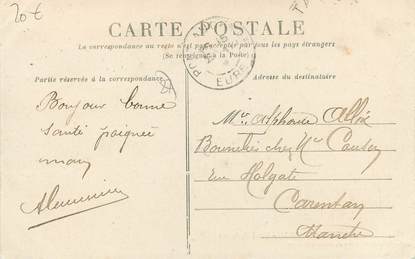 20€
CARTE POSTALE
La correspondance au recto n'est pas acceptée par tous les pays étrangers
(Se renseigner à la Poste)
Partie réservée à la correspondance
Adresse du destinataire
EURE
Bonjour bonne
santé poignée
main
Mr Alphonse
chez Mr
rue Holgate
Carentan
Manche